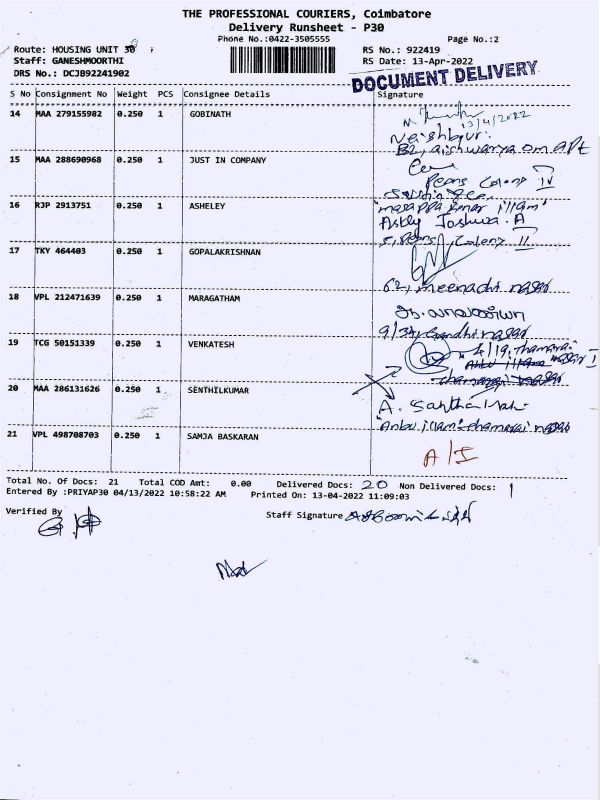 THE PROFESSIONAL COURIERS, Coimbatore
Delivery Runsheet - P30
Phone No.:0422-3505555
Page No.:2
Route: HOUSING UNIT 30
RS No.: 922419
Staff: GANESHMOORTHI
RS Date: 13-Apr-2022
DRS No.: DCJB92241902
DOCUMENT DELIVERY
S No Consignment No Weight PCS Consignee Details Signature
14 MAA 279155982 0.250 1 GOBINATH
13/4/2022
B2, aishwarya om APt
15 MAA 288690968 0.250 1 JUST IN COMPANY
Peons Colony IV
16 RJP 2913751 0.250 1 ASHELEY
Joshua. A
5, Peons Colony II
17 TKY 464403 0.250 1 GOPALAKRISHNAN
62, meenachi nagar
18 VPL 212471639 0.250 1 MARAGATHAM
9/34, Gandhi nagar
19 TCG 50151339 0.250 1 VENKATESH
4/19, Thamarai
nagar I
20 MAA 286131626 0.250 1 SENTHILKUMAR
A.
"Anbu illam" thamarai nagar
21 VPL 498708703 0.250 1 SAMJA BASKARAN
A/I
Total No. Of Docs: 21 Total COD Amt: 0.00 Delivered Docs: 20 Non Delivered Docs: 1
Entered By :PRIYAP30 04/13/2022 10:58:22 AM Printed On: 13-04-2022 11:09:03
Verified By
Staff Signature